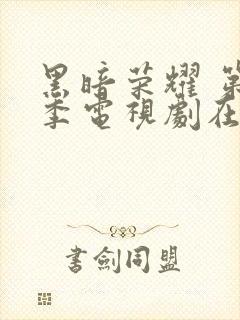 黑暗荣耀 第
季電視劇在
書劍同盟